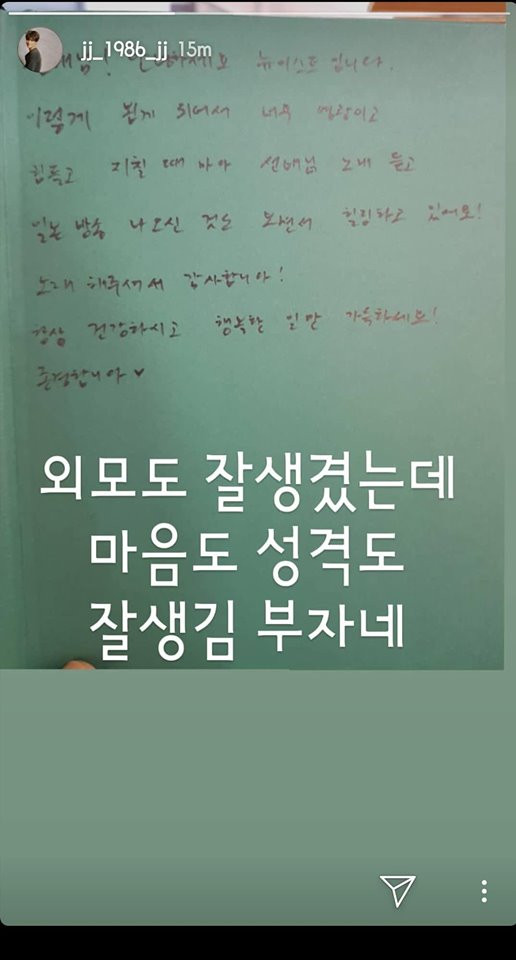 jj_1986_jj 15m
뉴이스트 입니다.
이렇게 뵙게 되어서 너무 영광이고
힘들고 지칠 때 마다 선배님 노래 듣고
일본 방송 나오신 것도 보면서 힐링하고 있어요!
노래 해주셔서 감사합니다!
항상 건강하시고 행복한 일만 가득하세요!
존경합니다 ♥
외모도 잘생겼는데
마음도 성격도
잘생김 부자네